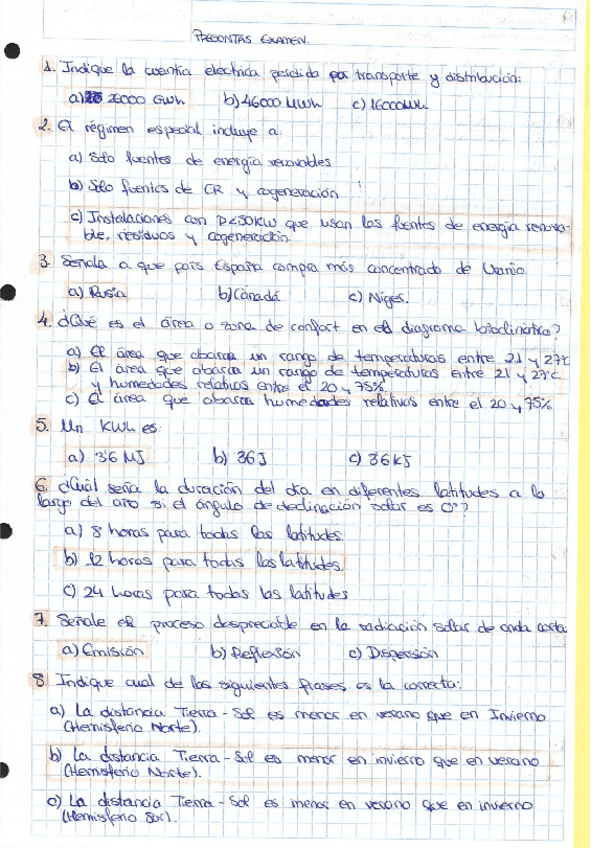 PREGUNTAS EXAMEN.
1. Indique la cuantía electrica perdida por transporte y distribución:
a) 26000 GWh b) 46000 MWh c) 16000MWh
2. El régimen especial incluye a:
a) Sólo fuentes de energía renovables
b) Sólo fuentes de ER y cogeneración
c) Instalaciones con P<50KW que usan las fuentes de energía renova-
ble, residuos y cogeneración.
3. Señala a que país España compra más concentrado de Uranio.
a) Rusia b) Canadá c) Niger.
4. ¿Qué es el área o zona de confort en el diagrama bioclimático?
a) El área que abarca un rango de temperaturas entre 21 y 27ºC
b) El área que abarca un rango de temperaturas entre 21 y 27ºC
y humedades relativas entre el 20 y 75%
c) El área que abarca humedades relativas entre el 20 y 75%
5. Un KWh es:
a) 3'6 MJ b) 36J c) 3'6 kJ
6. ¿Cuál sería la duración del día en diferentes latitudes a lo
largo del año si el ángulo de declinación solar es 0º?
a) 8 horas para todas las latitudes.
b) 12 horas para todas las latitudes.
c) 24 horas para todas las latitudes
7. Señale el proceso despreciable en la radiación solar de onda corta
a) Emisión b) Reflexión c) Dispersión
8 Indique cual de las siguientes frases es la correcta:
a) La distancia Tierra-Sol es menor en verano que en Invierno
(Hemisferio Norte).
b) La distancia Tierra-Sol es menor en invierno que en verano
(Hemisferio Norte).
c) La distancia Tierra-Sol es menor en verano que en invierno
(Hemisferio Sur).